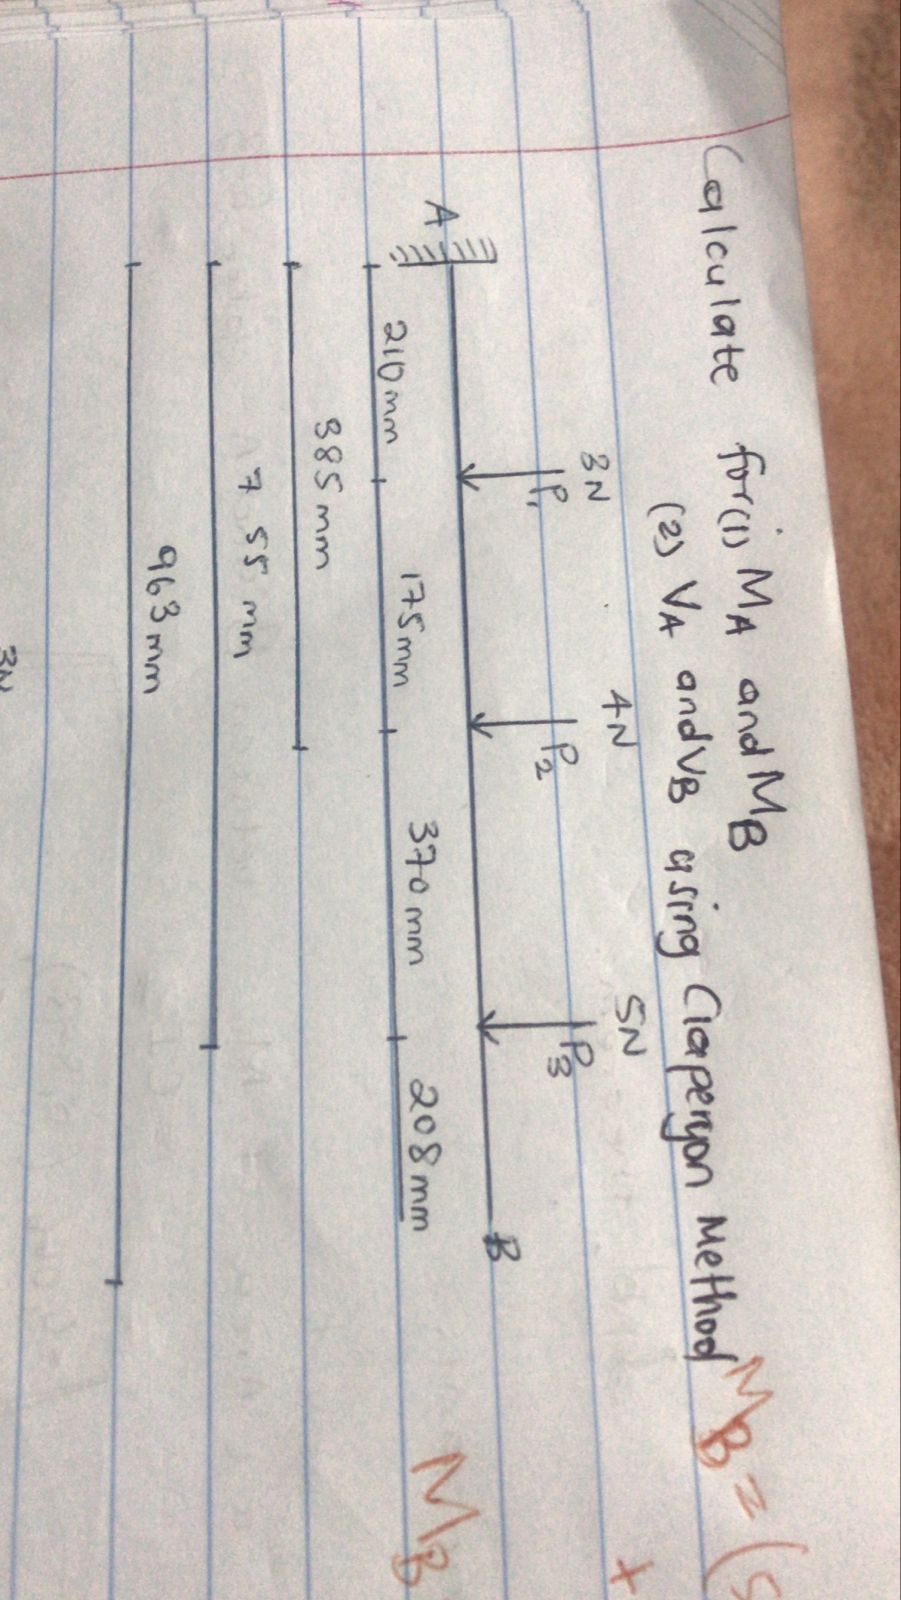 Calculate for(1) MA and MB
(2) VA and VB using Claperyon Method
MB = (5
+
3N 4N 5N
P1 P2 P3
A B
210mm 175mm 370mm 208mm
MB
385mm
755mm
963mm
3N